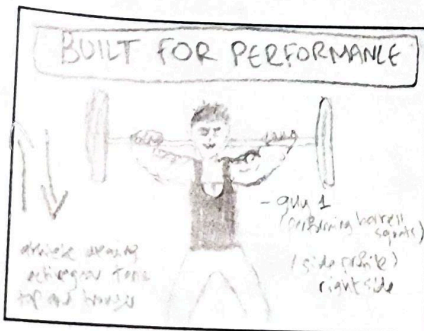 BUILT FOR PERFORMANCE
- guy 1
(performing barbell
squats)
(side profile)
right side
athlete wearing
activegear tank
top and